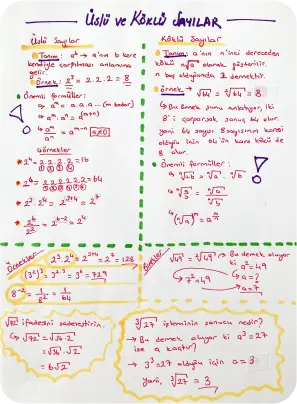 ÜSLÜ VE KÖKLÜ SAYILAR
Üslü Sayılar
Tanım: aᵇ → a'nın b kere
kendiyle çarpılması anlamına
gelir.
Örnek: 2³ = 2.2.2 = 8
Önemli formüller:
→ aᵐ = a.a.a...(m kadar)
→ aᵐ.aⁿ = a⁽ᵐ⁺ⁿ⁾
→ aᵐ/aⁿ = aᵐ⁻ⁿ a≠0
Örnekler
2⁴ = 2.2.2.2 = 16
① ② ③ ④
2⁶ = 2.2.2.2.2.2 = 64
① ② ③ ④ ⑤ ⑥
2³.2⁴ = 2³⁺⁴ = 2⁷
2⁶/2² = 2⁶⁻² = 2⁴
Köklü Sayılar
Tanım: a'nın n'inci dereceden
kökü ⁿ√a olarak gösterilir.
n boş olduğunda 2 demektir.
Örnek → √64 = ²√64 = 8
↳ Bu örnek şunu anlatıyor, iki
8'i çarparsak sonuç 64 olur.
yani 64 sayısı 8 sayısının karesi
olduğu için 64'ün kare kökü de
8 olur.
Önemli formüller:
↳ ⁿ√a.b = ⁿ√a . ⁿ√b
↳ ⁿ√a/b = ⁿ√a / ⁿ√b
↳ (ⁿ√a)ᵐ = a^(m/n)
Örnekler
2³.2⁴ = 2³⁺⁴ = 2⁷ = 128
(3²)³ = 3²·³ = 3⁶ = 729
8⁻² = 1/8² = 1/64
Örnekler
√49 = ²√49 → Bu demek oluyor
ki a² = 49
→ 7² = 49
a = ?
a = 7
√72 ifadesini sadeleştirin.
↳ √72 = √36.2
= √36.√2
= 6√2
³√27 işleminin sonucu nedir?
→ Bu demek oluyor ki a³ = 27
ise a kaçtır?
→ 3³ = 27 olduğu için a = 3
yani, ³√27 = 3